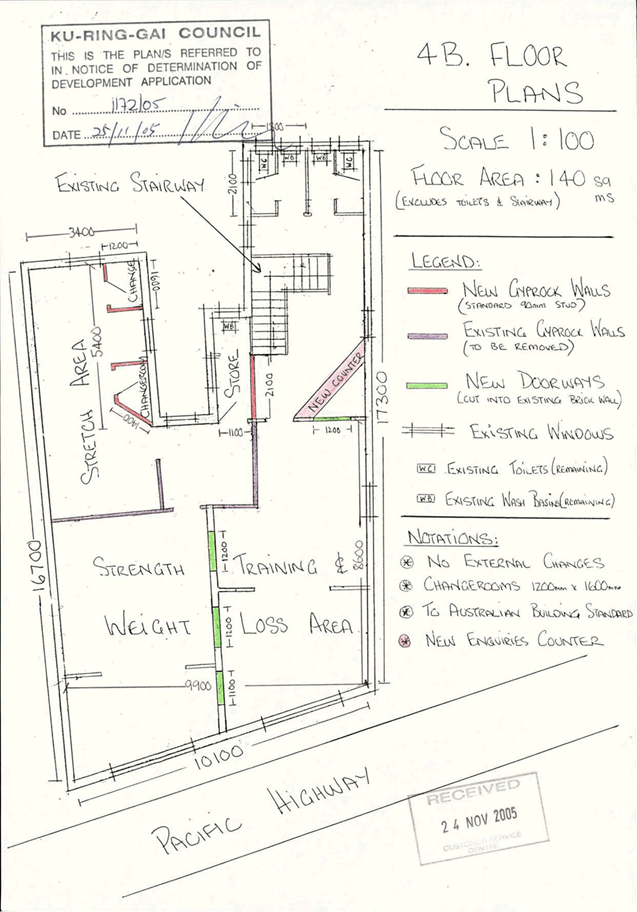 KU-RING-GAI COUNCIL
THIS IS THE PLAN/S REFERRED TO
IN NOTICE OF DETERMINATION OF
DEVELOPMENT APPLICATION
No 1172/05
DATE 25/11/05
4B. FLOOR
PLANS
SCALE 1:100
FLOOR AREA : 140 SQ MS
(EXCLUDES TOILETS & STAIRWAY)
LEGEND:
NEW GYPROCK WALLS
(STANDARD 90mm STUD)
EXISTING GYPROCK WALLS
(TO BE REMOVED)
NEW DOORWAYS
(CUT INTO EXISTING BRICK WALL)
EXISTING WINDOWS
WC EXISTING TOILETS (REMAINING)
WB EXISTING WASH BASINS (REMAINING)
NOTATIONS:
NO EXTERNAL CHANGES
CHANGEROOMS 1200mm X 1600mm
TO AUSTRALIAN BUILDING STANDARD
NEW ENQUIRIES COUNTER
EXISTING STAIRWAY
WC WB WB WC
2100
3400
1200
CHANGE
1600
5400
STRETCH AREA
CHANGEROOM
1400
WB
STORE
1100
2100
NEW COUNTER
1200
17300
16700
8600
STRENGTH
TRAINING &
WEIGHT
LOSS AREA
1200
1200
1100
9900
10100
PACIFIC HIGHWAY
RECEIVED
24 NOV 2005
CUSTOMER SERVICE
CENTRE